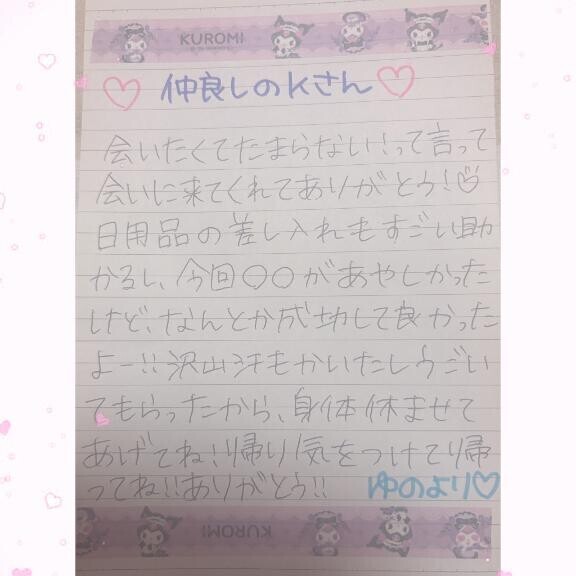 KUROMI
♡仲良しのKさん♡
会いたくてたまらない!って言って
会いに来てくれてありがとう!♡
日用品の差し入れもすごい助
かるし、今回〇〇があやしかった
けど、なんとか成功して良かった
よー!!沢山汗もかいたしうごい
てもらったから、身体休ませて
あげてね!帰り気をつけて帰
ってね!!ありがとう!!
ゆのより♡
KUROMI